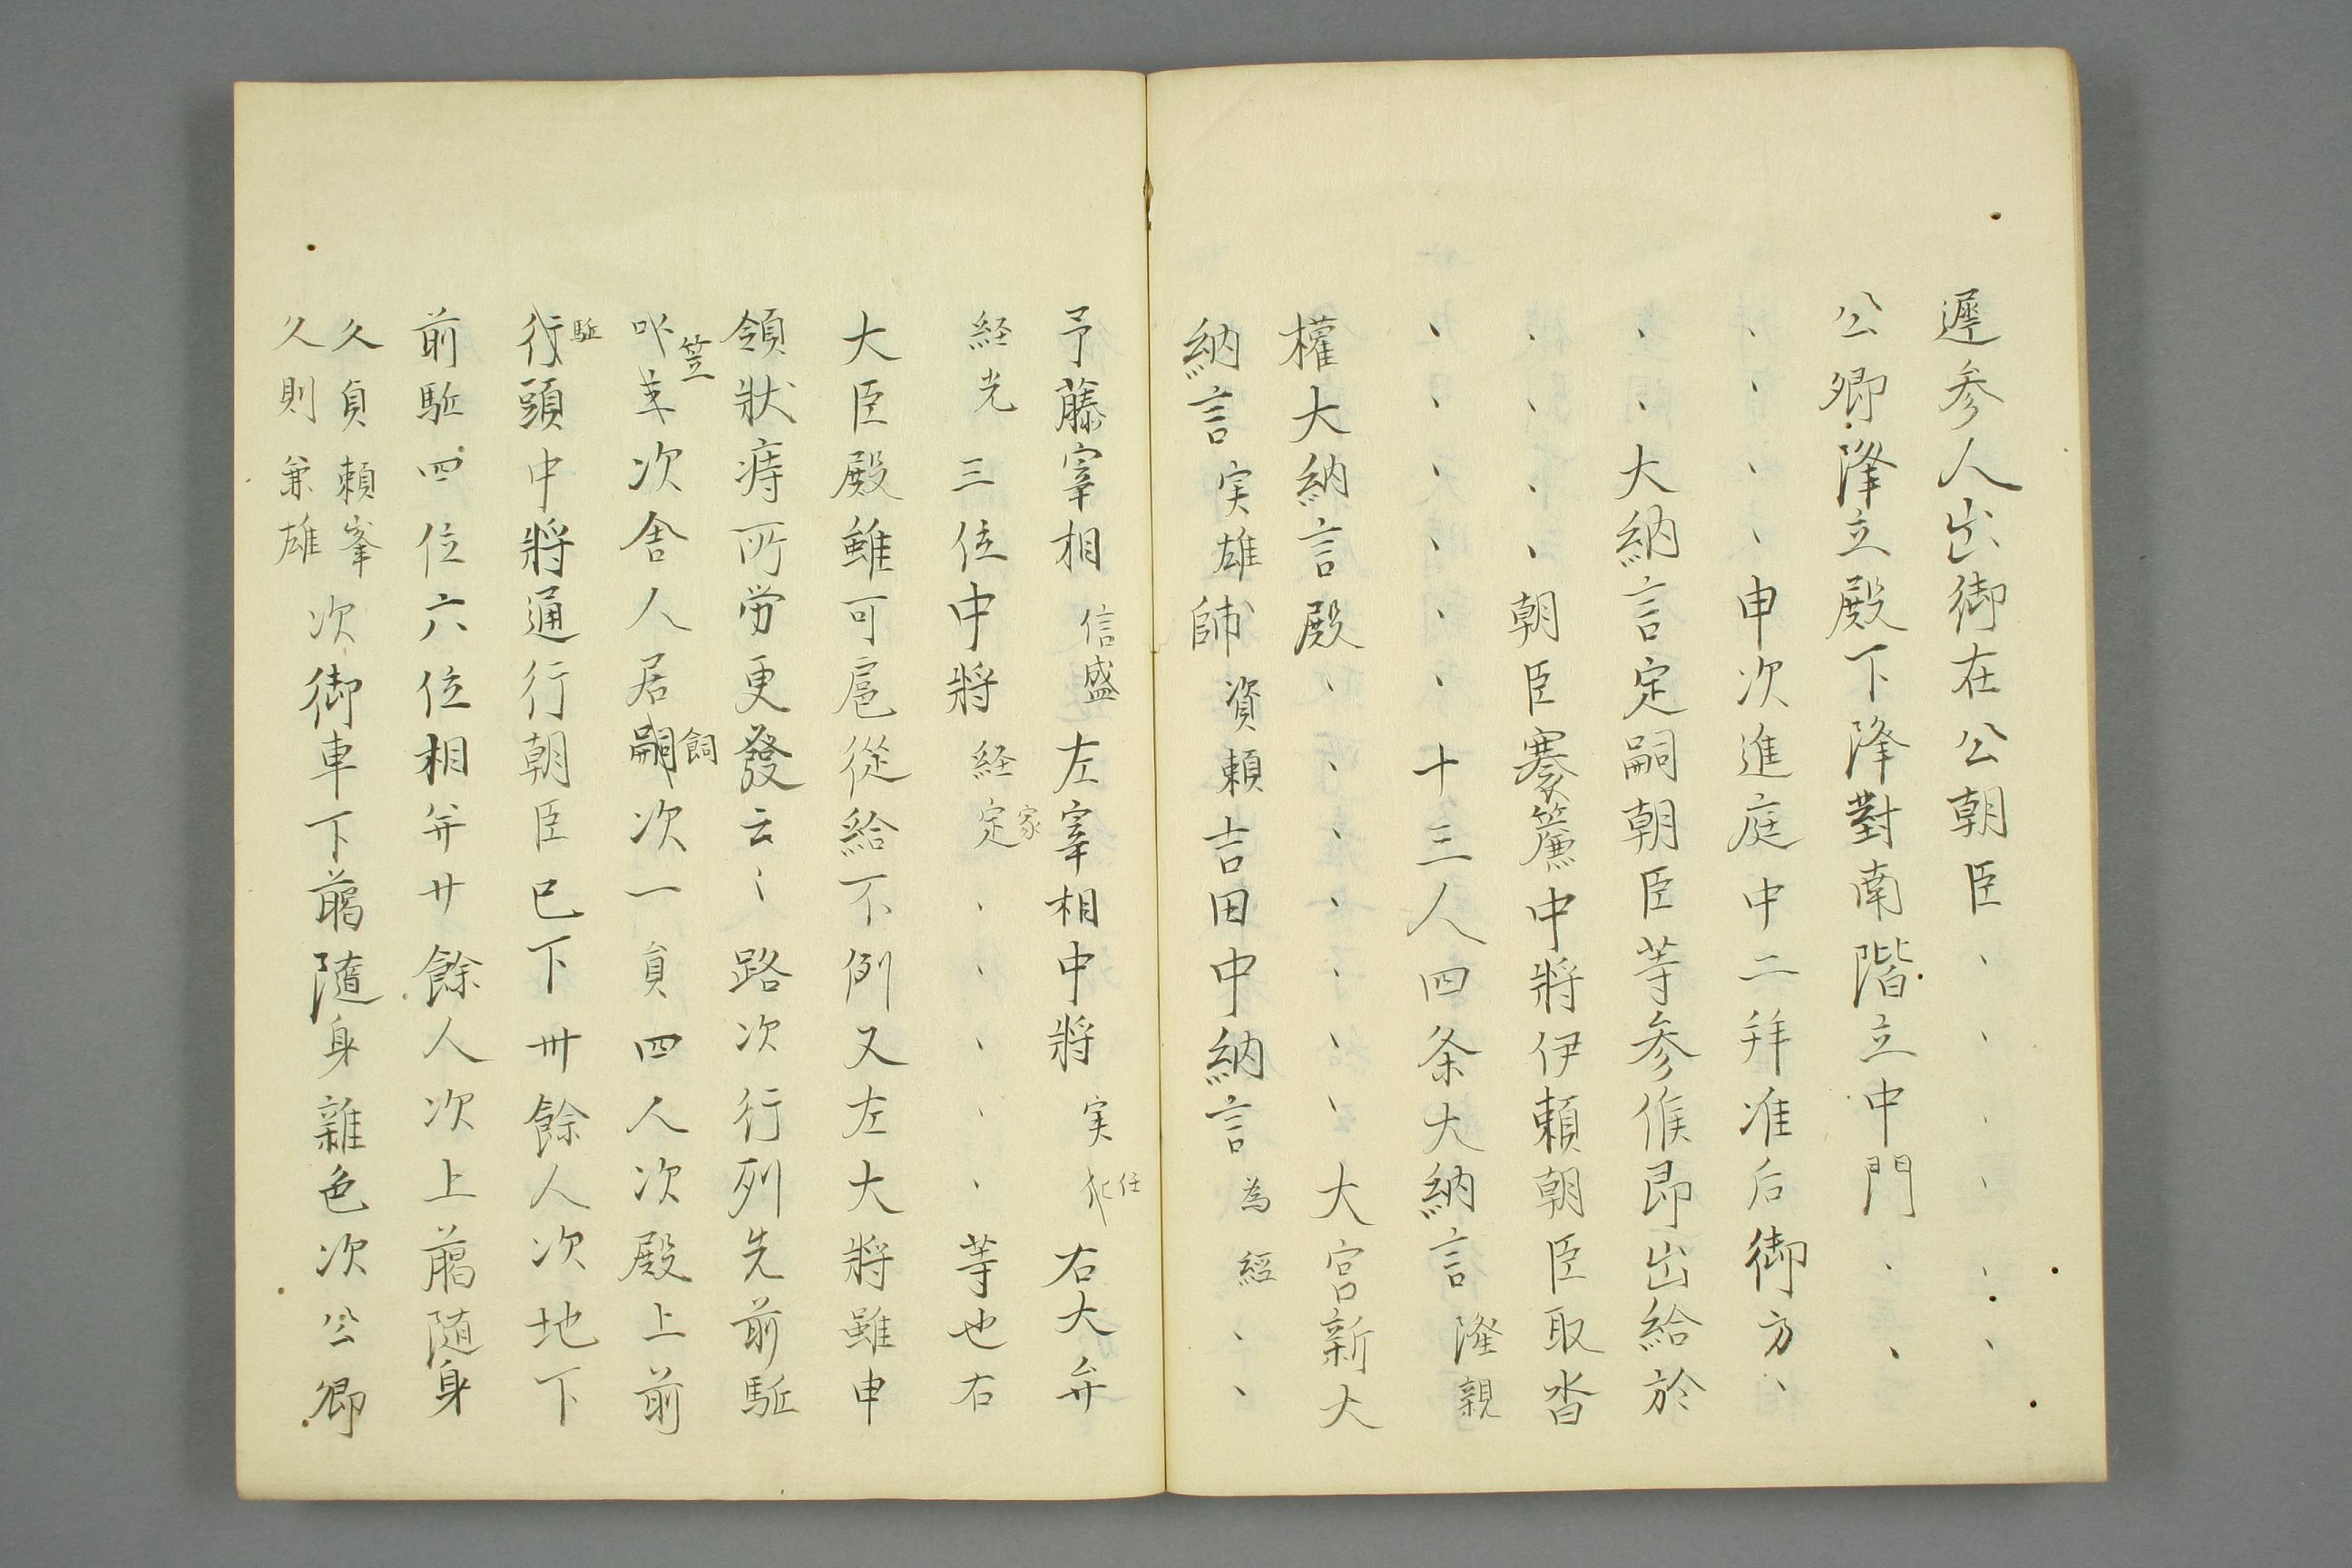 遅参人出御在公朝臣、、、、、、
公卿降立殿下降對南階立中門、、
、、、、申次進庭中二拜准后御方、
、、大納言定嗣朝臣等参候即出給於
、、、、朝臣褰簾中將伊頼朝臣取沓
、、、、、、十三人四条大納言隆親
權大納言殿、、、、、、、大宮新大
納言実雄帥資頼吉田中納言為経、、
予藤宰相信盛左宰相中將実任右大弁
経光三位中將経定家、、、、、等也右
大臣殿雖可扈從給不例又左大將雖申
領狀痔所労更發云〻路次行列先前駈
笠
次舎人居嗣飼次一負四人次殿上前
駈
行頭中將通行朝臣已下卅餘人次地下
前駈四位六位相并廿餘人次上﨟随身
久負頼峯
久則兼雄
次御車下﨟隨身雜色次公卿